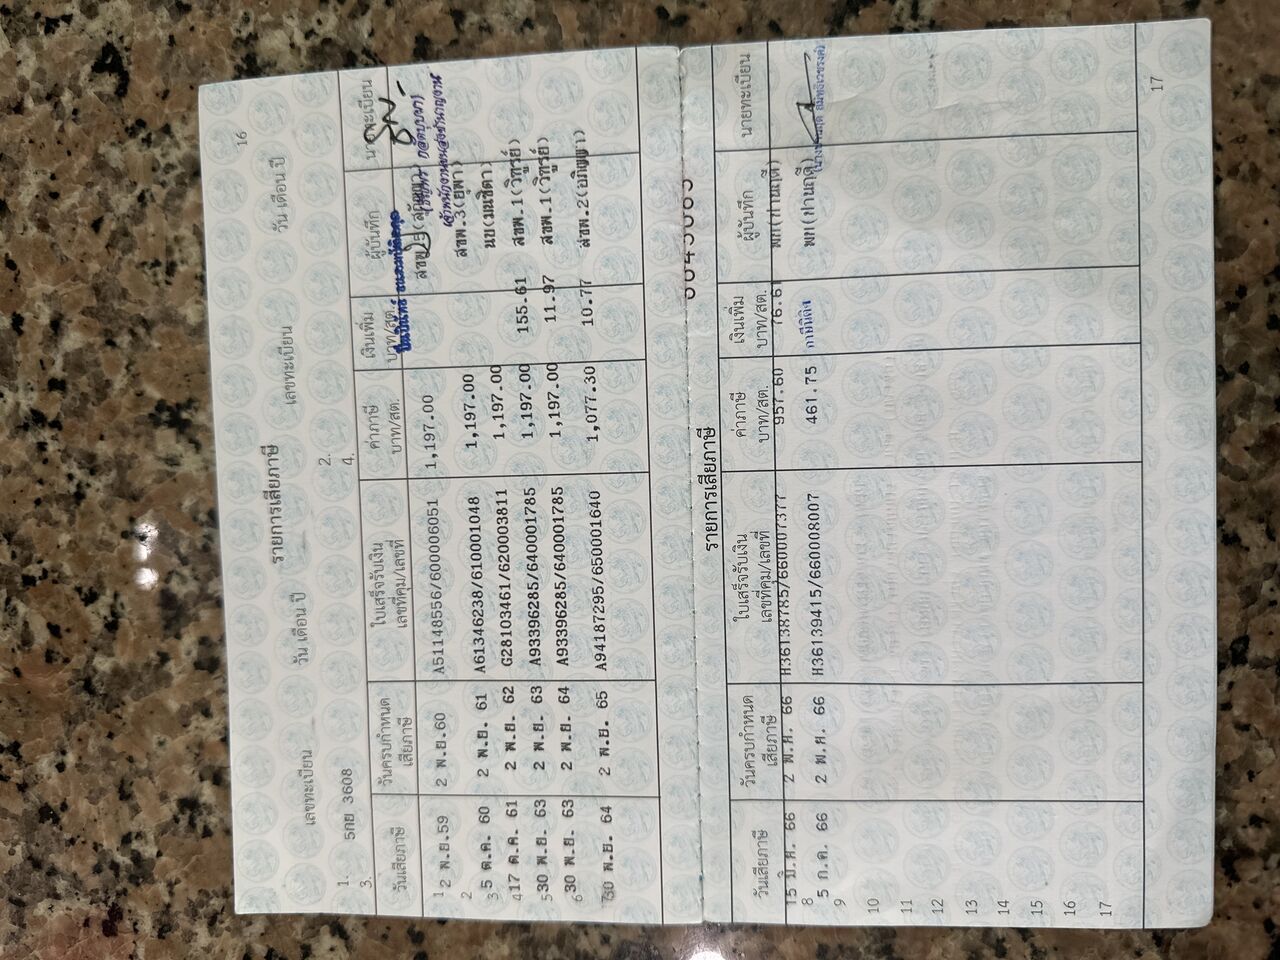 16
รายการเสียภาษี
เลขทะเบียน วัน เดือน ปี เลขทะเบียน วัน เดือน ปี
1. 5กย 3608 2.
3. 4.
วันเสียภาษี วันครบกำหนด เสียภาษี ใบเสร็จรับเงิน เลขที่คุม/เลขที่ ค่าภาษี บาท/สต. เงินเพิ่ม บาท/สต. ผู้บันทึก นายทะเบียน
1 2 พ.ย.59 2 พ.ย.60 A51148556/600006051 1,197.00
2
3 5 ต.ค. 60 2 พ.ย. 61 A61346238/610001048 1,197.00 สขพ.3(ยุพา)
4 17 ต.ค. 61 2 พ.ย. 62 G28103461/620003811 1,197.00 นข(มนชิดา)
5 30 พ.ย. 63 2 พ.ย. 63 A93396285/640001785 1,197.00 155.61 สขพ.1(วิฑูรย์)
6 30 พ.ย. 63 2 พ.ย. 64 A93396285/640001785 1,197.00 11.97 สขพ.1(วิฑูรย์)
7 30 พ.ย. 64 2 พ.ย. 65 A94187295/650001640 1,077.30 10.77 สขพ.2(อภิญญา)
เจ้าพนักงานขนส่งชำนาญงาน
รายการเสียภาษี
วันเสียภาษี วันครบกำหนด เสียภาษี ใบเสร็จรับเงิน เลขที่คุม/เลขที่ ค่าภาษี บาท/สต. เงินเพิ่ม บาท/สต. ผู้บันทึก นายทะเบียน
15 มิ.ย. 66 2 พ.ย. 66 H36138785/660007377 957.60 76.61 พก(ปานฤดี)
8 5 ก.ค. 66 2 พ.ย. 66 H36139415/660008007 461.75 พก(ปานฤดี)
9
10
11
12
13
14
15
16
17
17